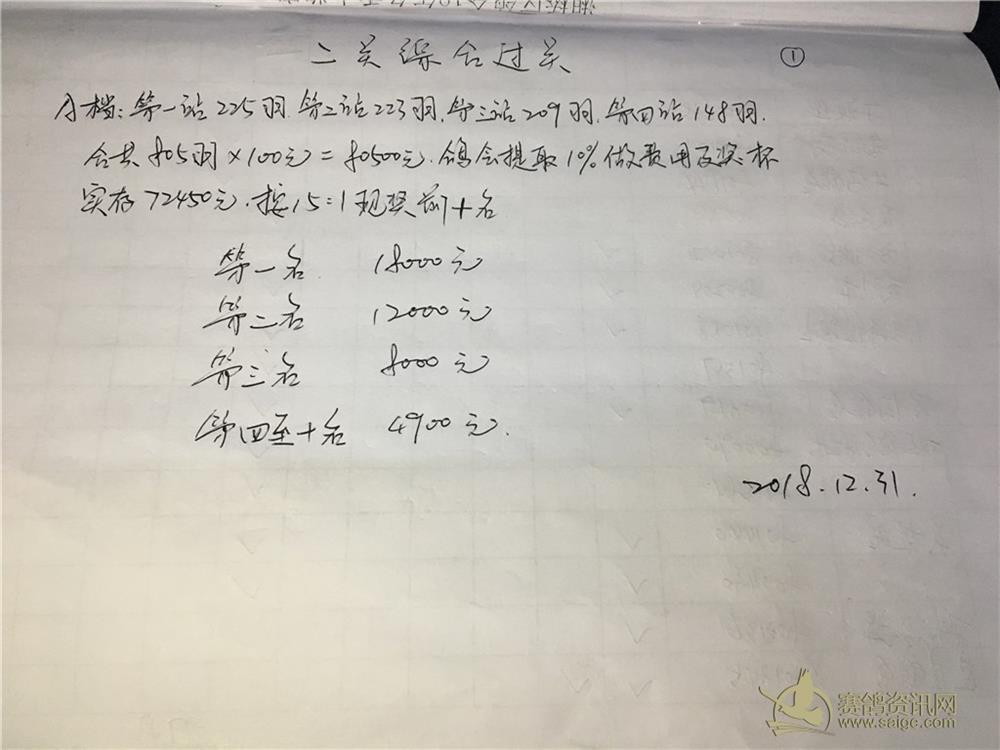 二关综合过关 ①
A档：第一站225羽.第二站223羽.第三站209羽.第四站148羽.
合共805羽×100元=80500元.鸽会提取10%做费用及奖杯
实存72450元.按15:1现奖前十名
第一名 18000元
第二名 12000元
第三名 8000元
第四至十名 4900元.
2018.12.31.
赛鸽资讯网
www.saigc.com